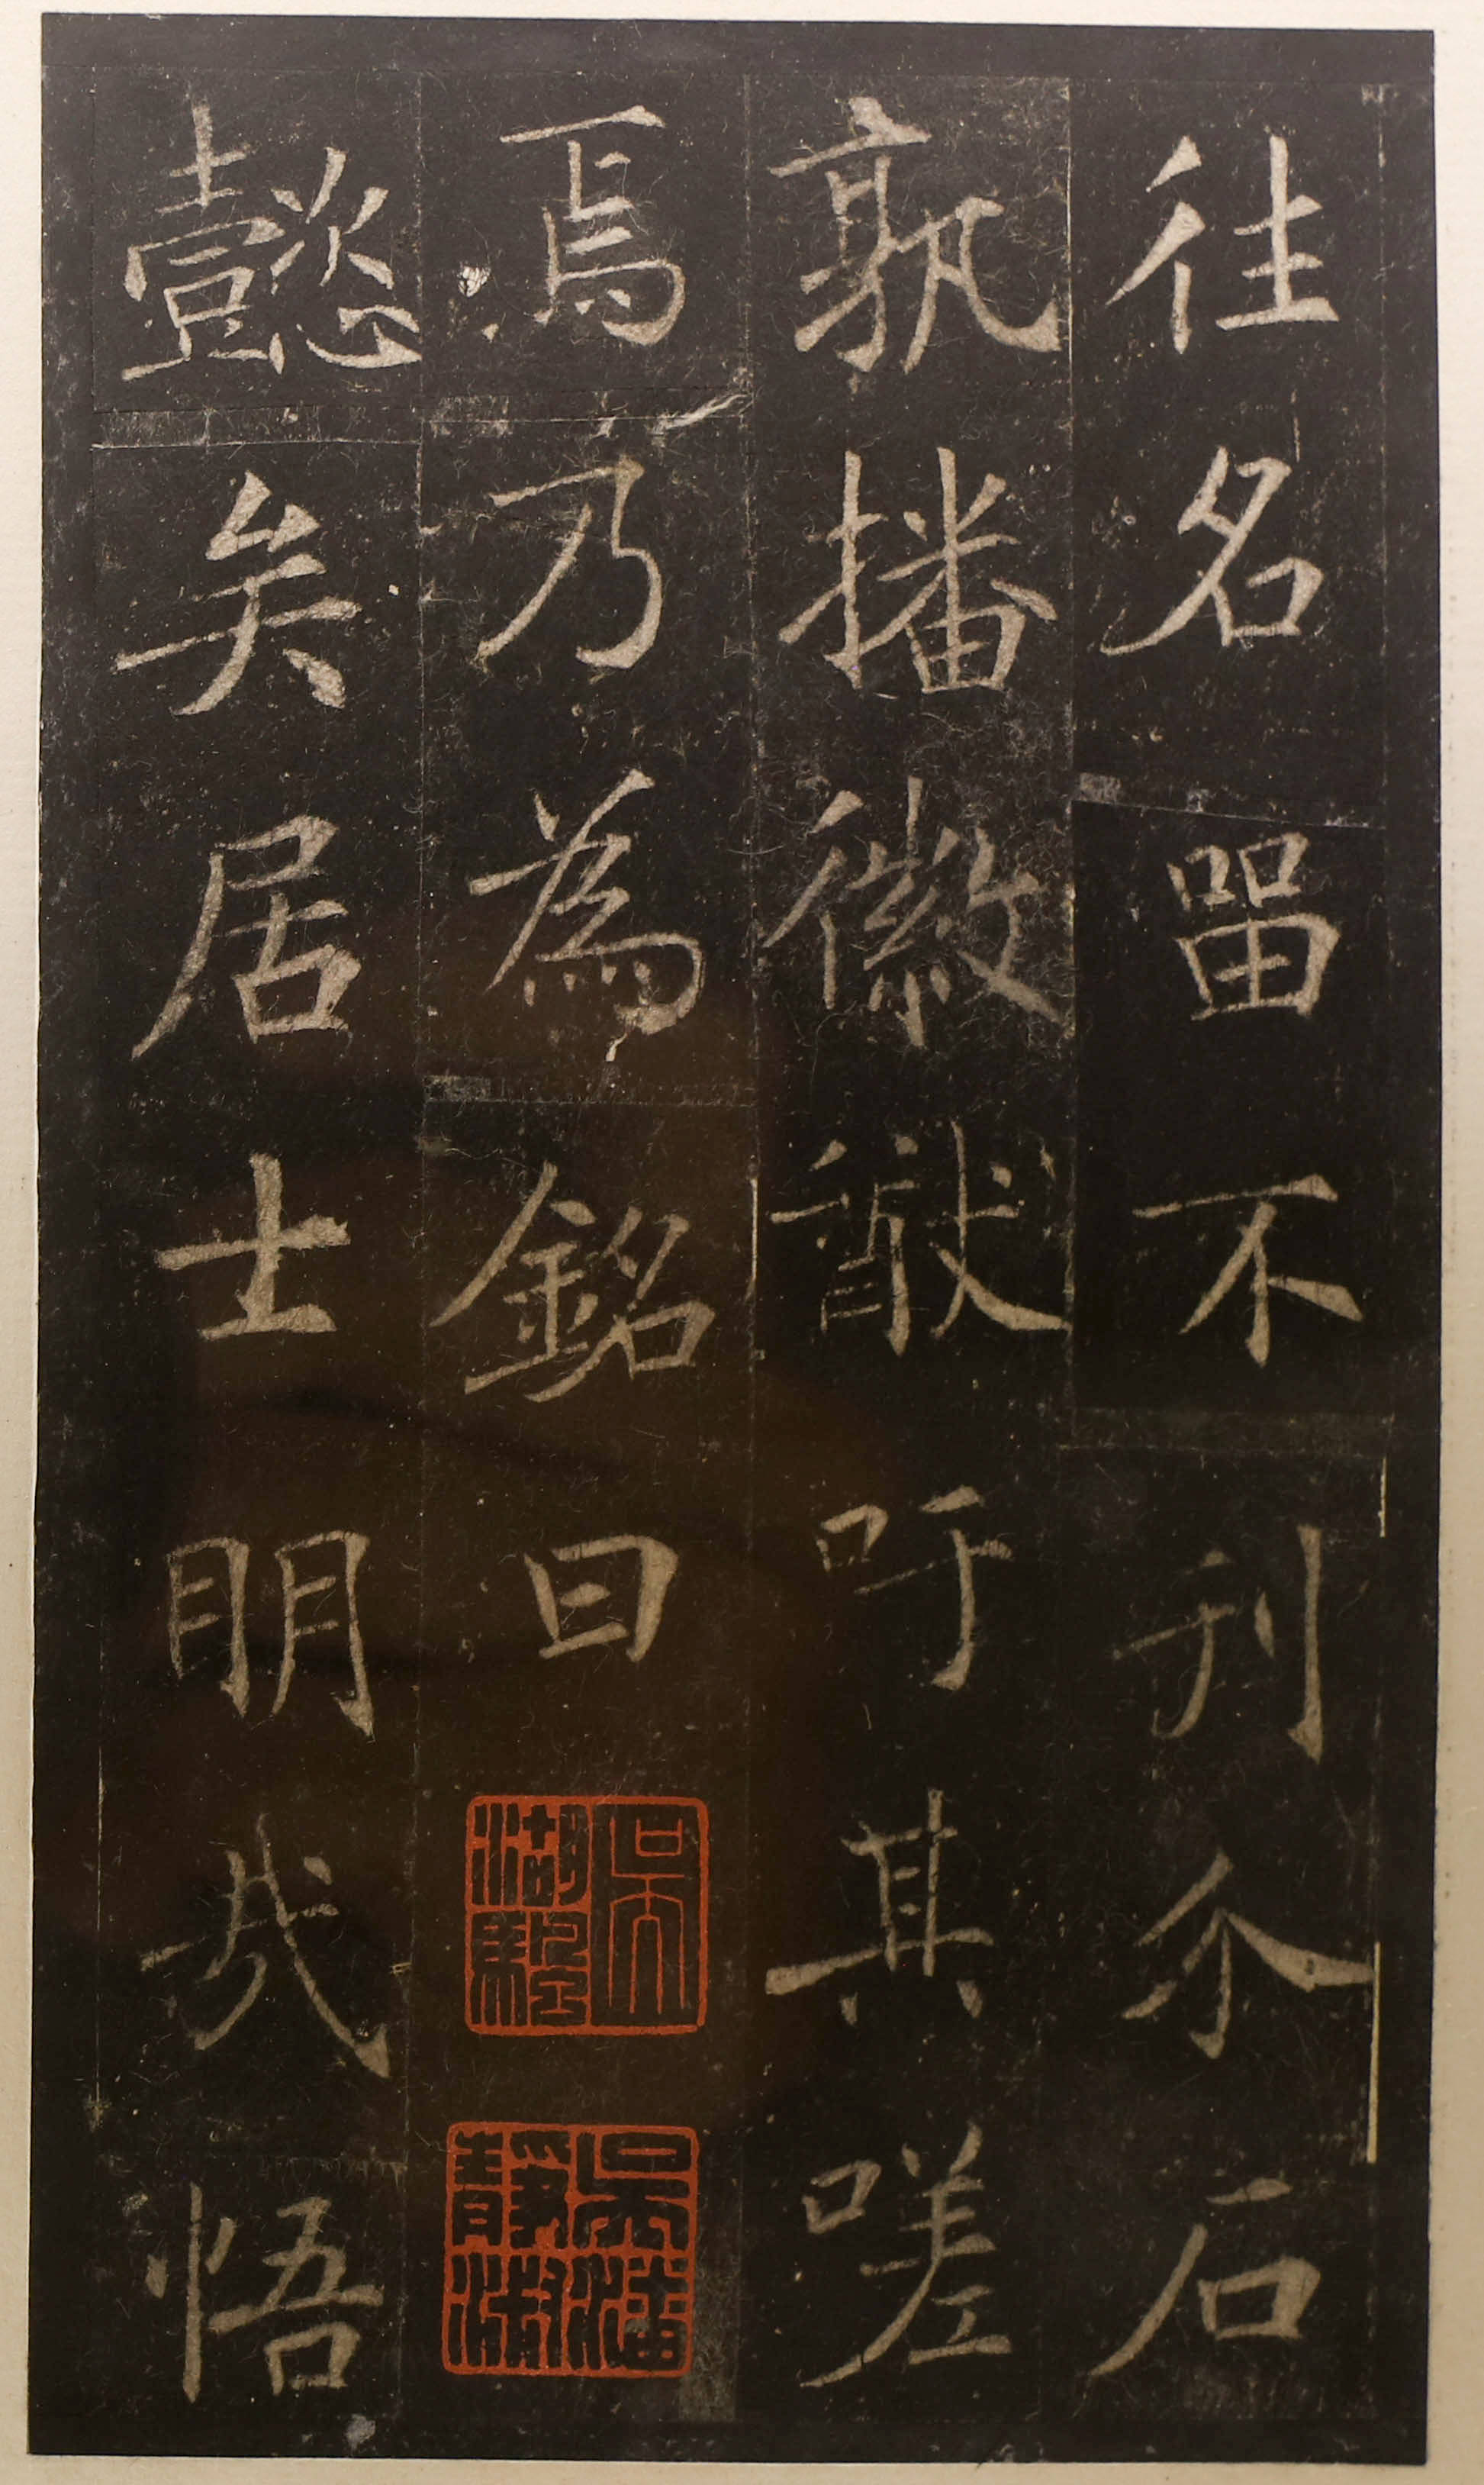 往名留不刊介石
孰播徽猷吁其嗟
焉乃為銘曰
吳湖颿
吳潘靜淑
懿矣居士明哉悟